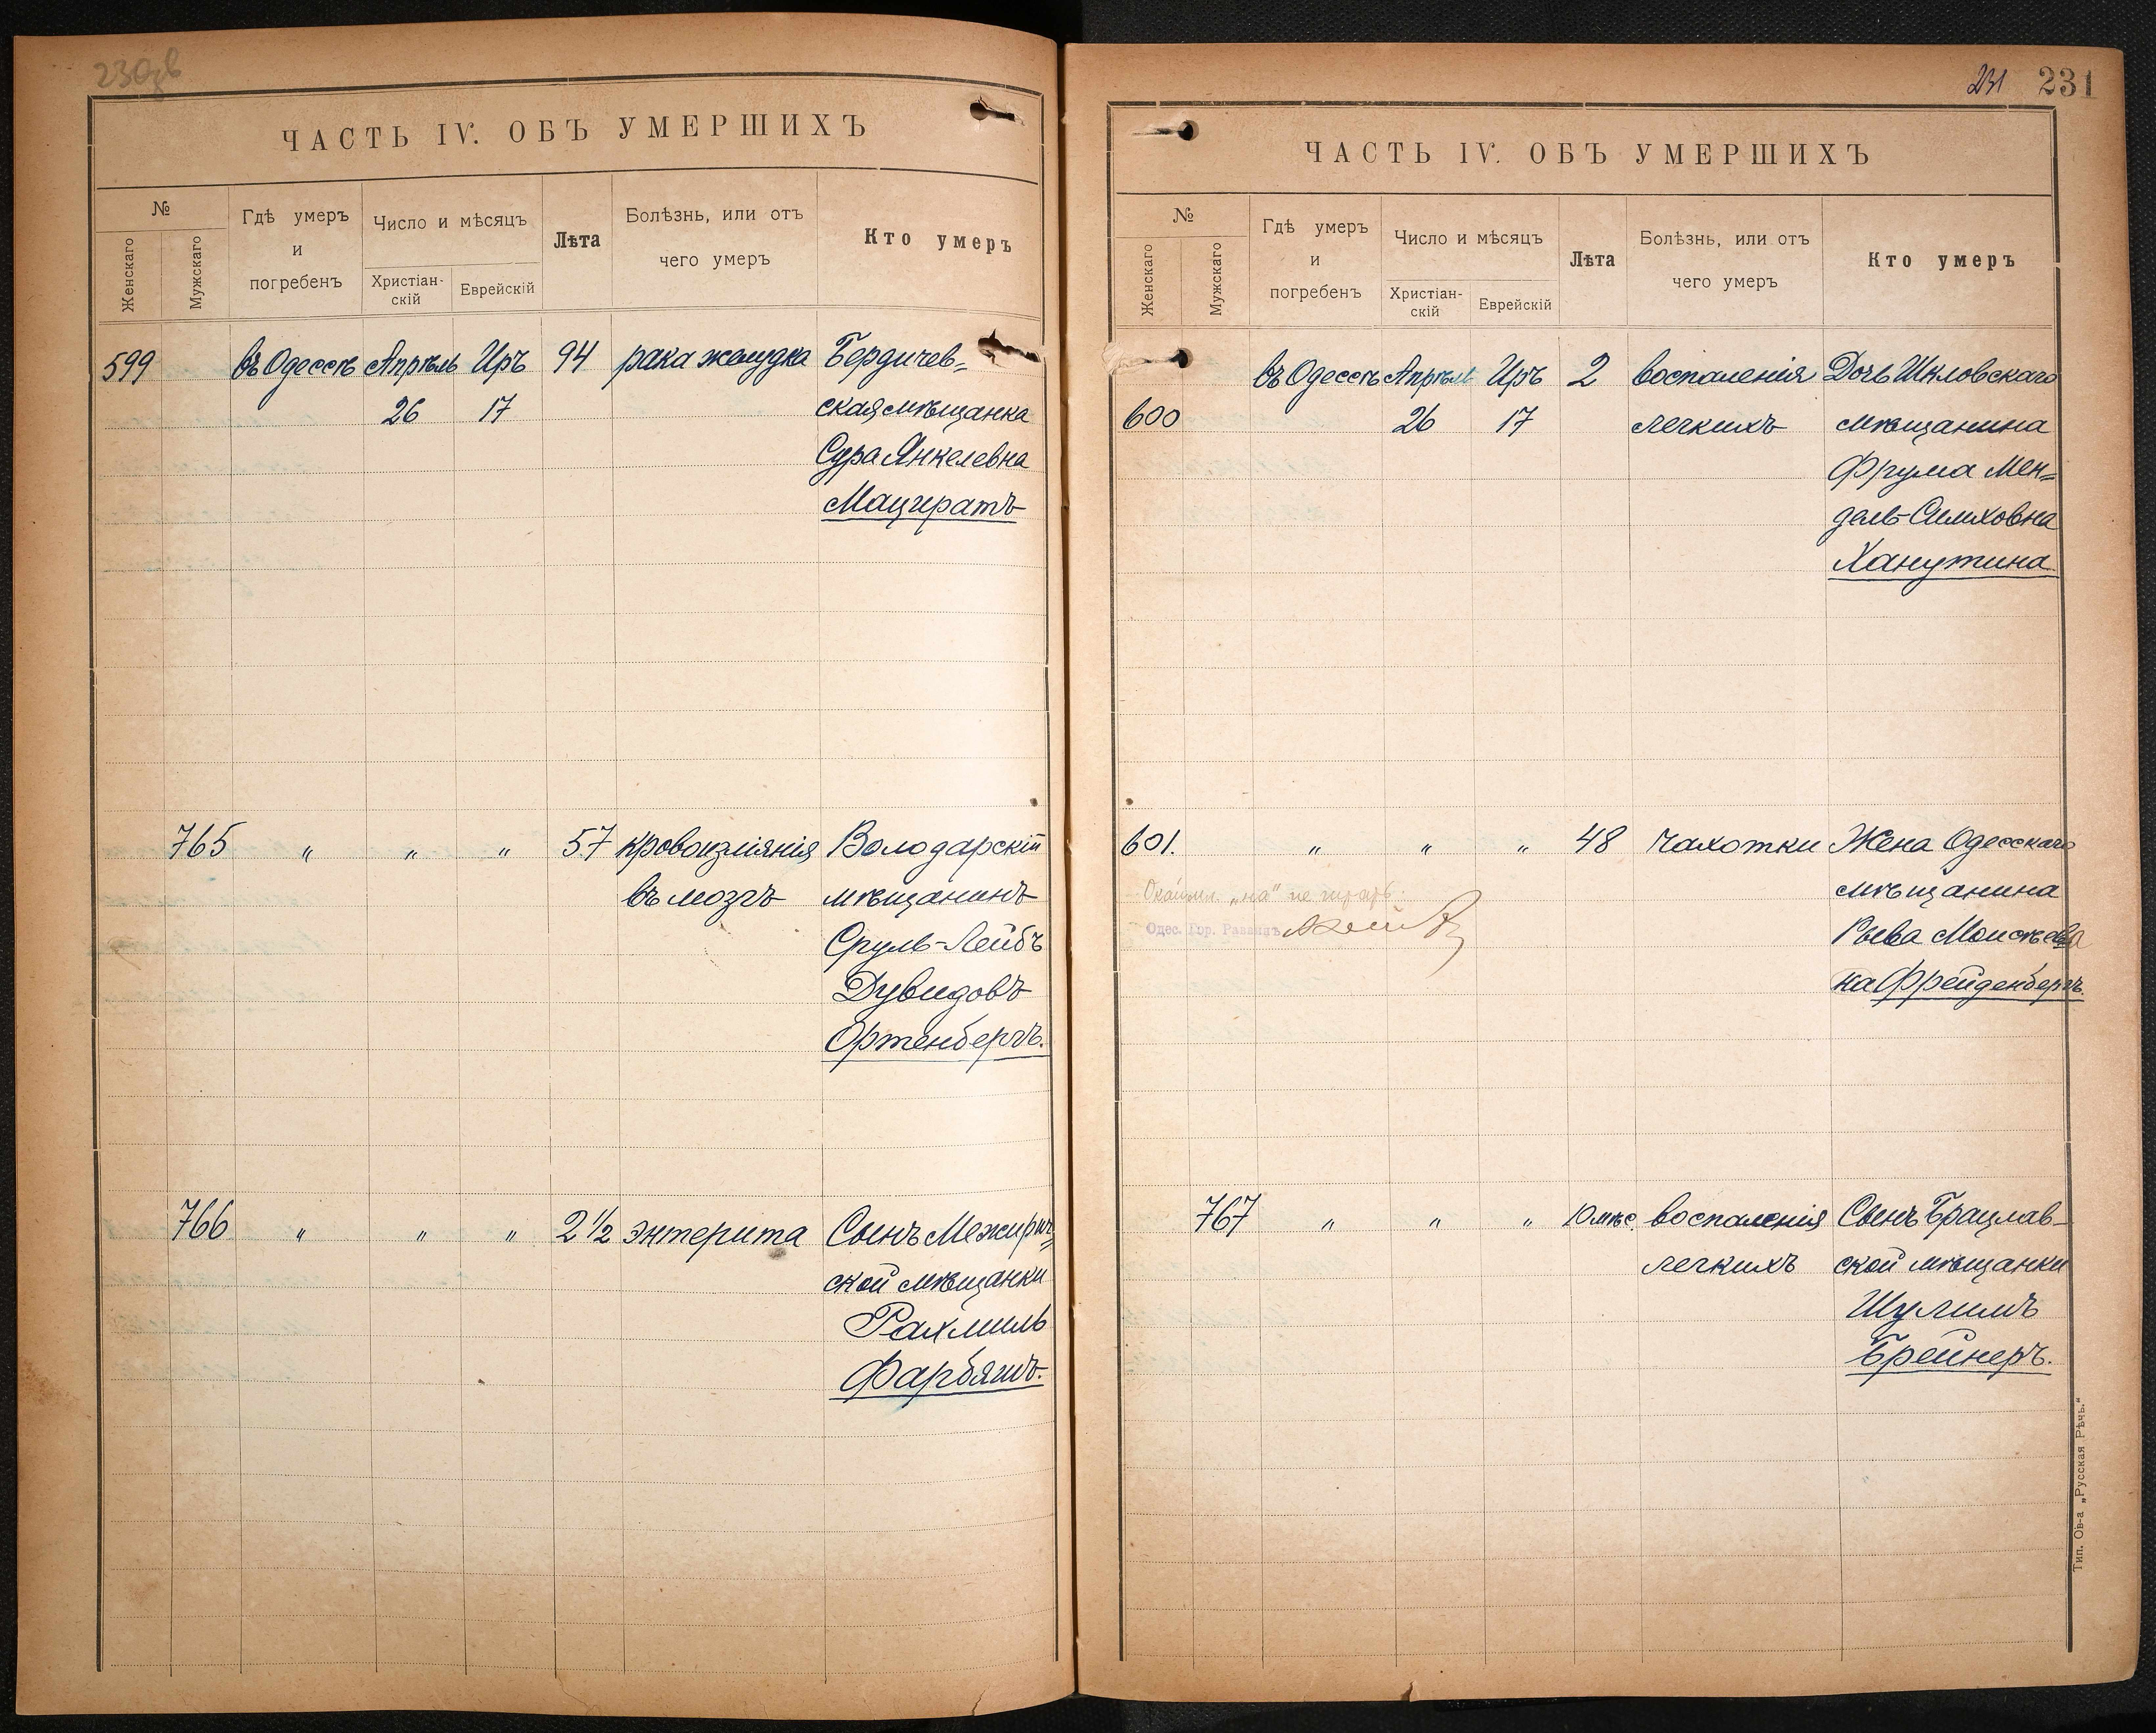 230зв
ЧАСТЬ IV. ОБЪ УМЕРШИХЪ
№
Женскаго
Мужскаго
Гдѣ умеръ
и
погребенъ
Число и мѣсяцъ
Христіан-
скій
Еврейскій
Лѣта
Болѣзнь, или отъ
чего умеръ
Кто умеръ
599 въ Одессѣ Апрѣль Иръ 94 рака желудка Бердичев=
26 17 ская мѣщанка
Сура Янкелевна
Мацератъ
765 " " " 57 кровоизліянія Володарскій
въ мозгъ мѣщанинъ
Сруль-Лейбъ
Дувидовъ
Ортенбергъ.
766 " " " 2 1/2 энтерита Сынъ Межирич=
ской мѣщанки
Рахмиль
Фарбяжъ.
231 231
ЧАСТЬ IV. ОБЪ УМЕРШИХЪ
№
Женскаго
Мужскаго
Гдѣ умеръ
и
погребенъ
Число и мѣсяцъ
Христіан-
скій
Еврейскій
Лѣта
Болѣзнь, или отъ
чего умеръ
Кто умеръ
въ Одессѣ Апрѣль Иръ 2 воспаленія Дочь Шкловскаго
600 26 17 легкихъ мѣщанина
Фрума Мен=
дель-Симховна
Ханутина
601. " " " 48 чахотки Жена Одесскаго
"на" не читать.
мѣщанина
Одес. Гор. Раввинъ
Рива Моисѣева
на Фрейденбергъ.
767 " " " 10 мѣс. воспаленія Сынъ Брацлав-
легкихъ ской мѣщанки
Шулимъ
Брейнеръ.
Тип. Ов-а „Русская Рѣчь."